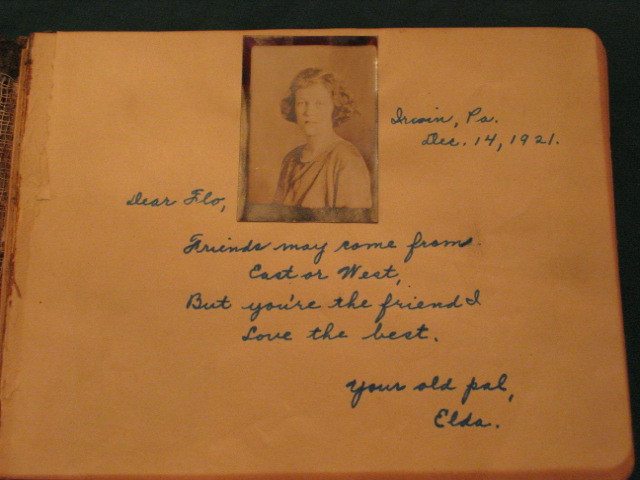 Irwin, Pa.
Dec. 14, 1921.
Dear Flo,
Friends may come from
East or West,
But you're the friend I
Love the best.
Your old pal,
Elda.